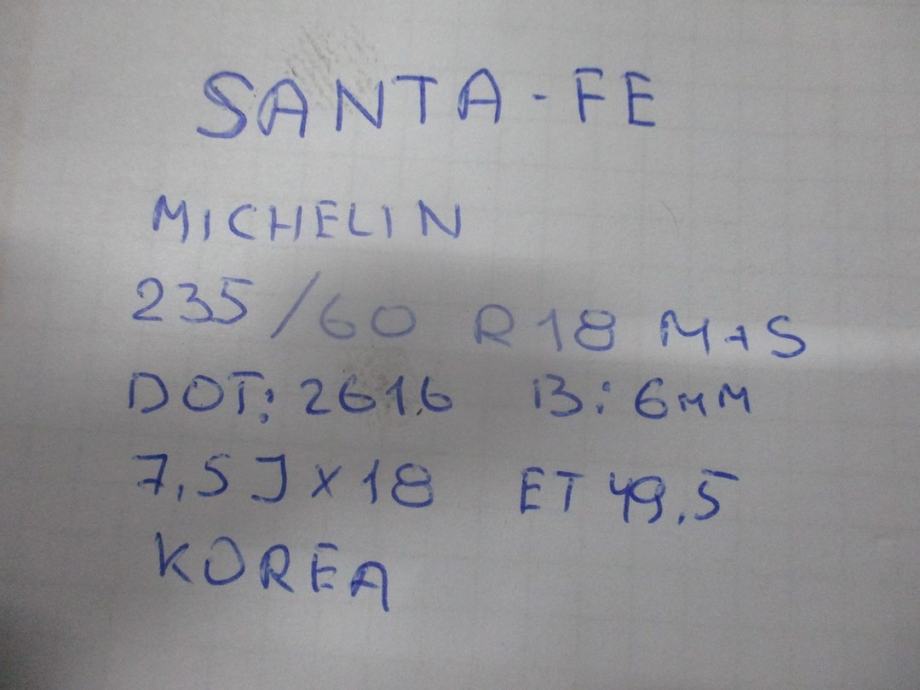 SANTA-FE
MICHELIN
235/60 R18 M+S
DOT: 2616 B: 6mm
7,5J x 18 ET 49,5
KOREA